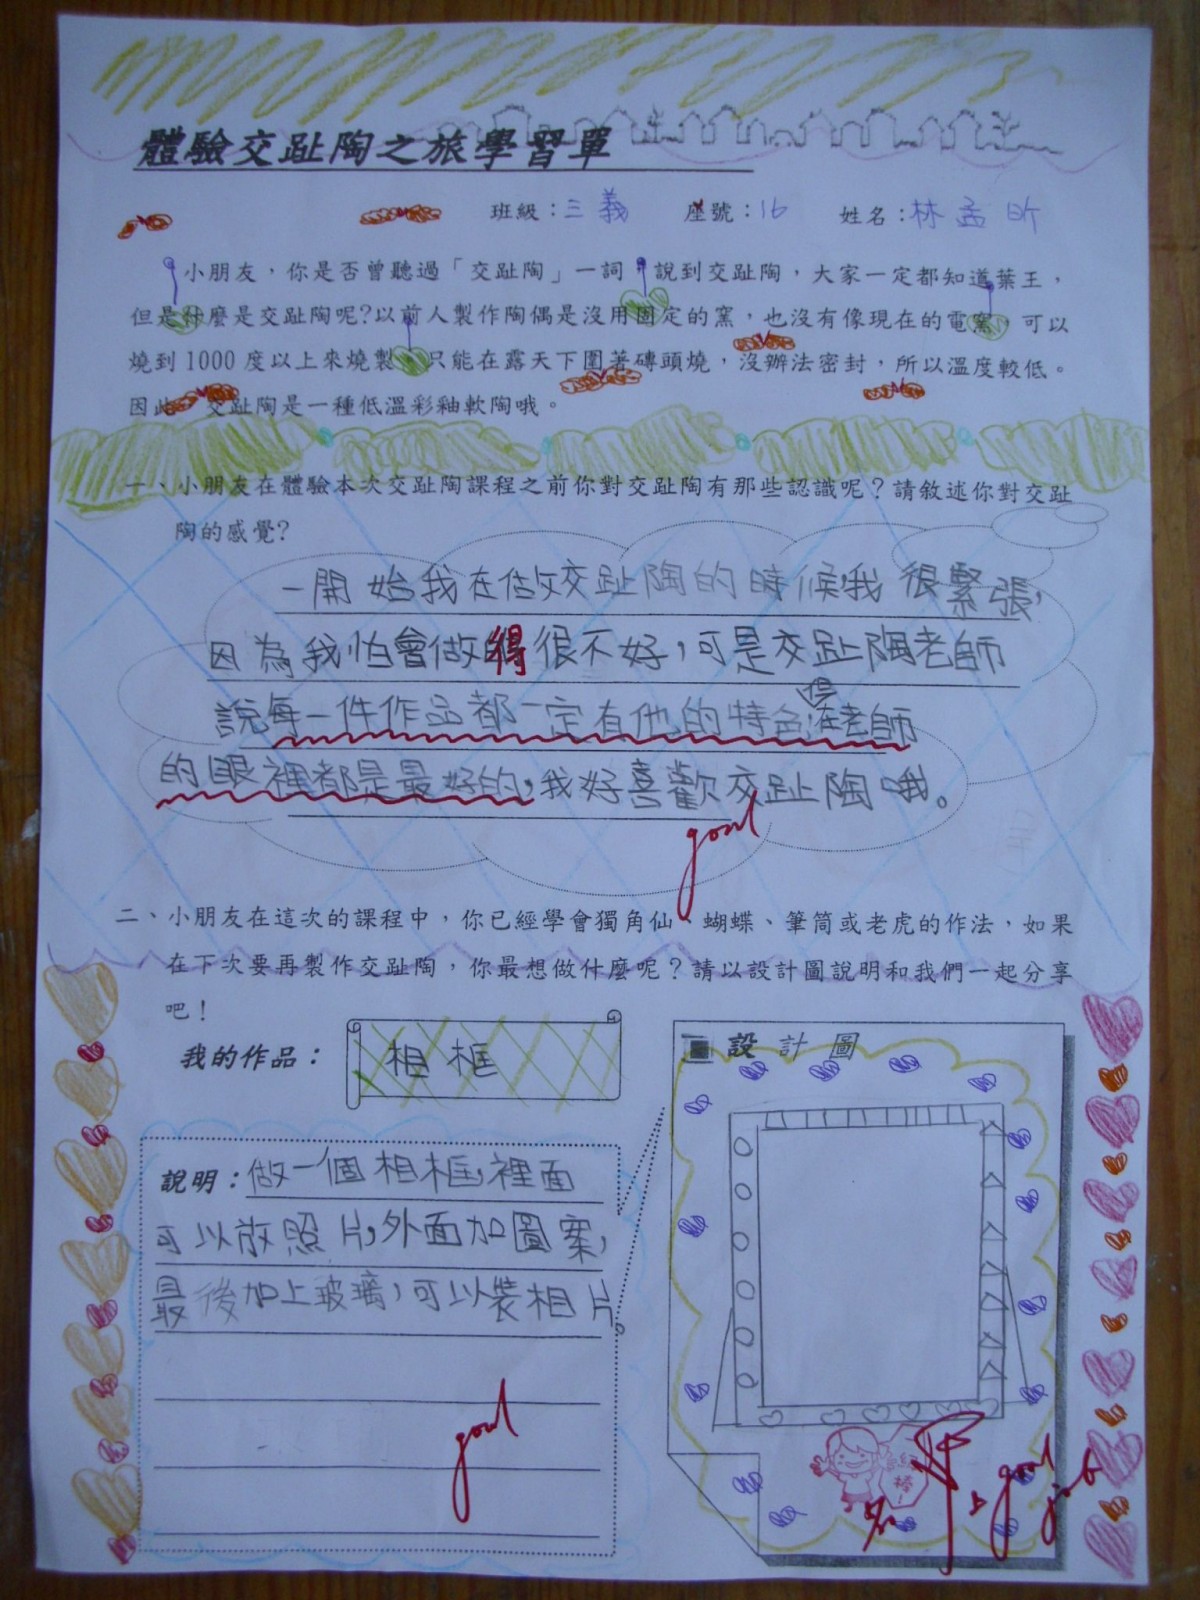 體驗交趾陶之旅學習單
班級：三義 座號：16 姓名：林孟昕
小朋友，你是否曾聽過「交趾陶」一詞，說到交趾陶，大家一定都知道葉王，
但是什麼是交趾陶呢?以前人製作陶偶是沒用固定的窯，也沒有像現在的電窯，可以
燒到1000度以上來燒製，只能在露天下圍著磚頭燒，沒辦法密封，所以溫度較低。
因此，交趾陶是一種低溫彩釉軟陶哦。
一、小朋友在體驗本次交趾陶課程之前你對交趾陶有那些認識呢？請敘述你對交趾
陶的感覺?
一開始我在做交趾陶的時候，我很緊張，
因為我怕會做得很不好，可是交趾陶老師
說每一件作品都一定有他的特色，在老師
的眼裡都是最好的，我好喜歡交趾陶哦。
good
二、小朋友在這次的課程中，你已經學會獨角仙、蝴蝶、筆筒或老虎的作法，如果
在下次要再製作交趾陶，你最想做什麼呢？請以設計圖說明和我們一起分享
吧！
我的作品：相框
設計圖
說明：做一個相框，裡面
可以放照片，外面加圖案，
最後加上玻璃，可以裝相片。
good
棒！
good
job